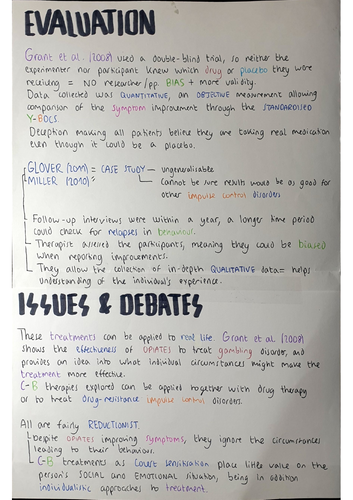 EVALUATION
Grant et al. (2008) used a double-blind trial, so neither the
experimenter nor participant knew which drug or placebo they were
receiving = NO researcher/pp. BIAS + more validity.
Data collected was QUANTITATIVE, an OBJECTIVE measurement allowing
comparison of the symptom improvement through the STANDARDISED
Y-BOCS.
Deception making all patients believe they are taking real medication
even though it could be a placebo.
GLOVER (2011) = CASE STUDY - ungeneralisable
MILLER (2010) = cannot be sure results would be as good for
other impulse control disorders
Follow-up interviews were within a year, a longer time period
could check for relapses in behaviour.
Therapist assessed the participants, meaning they could be biased
when reporting improvements.
They allow the collection of in-depth QUALITATIVE data = helps
understanding of the individual's experience.
ISSUES & DEBATES
These treatments can be applied to real life. Grant et al. (2008)
shows the effectiveness of OPIATES to treat gambling disorder, and
provides an idea into what individual circumstances might make the
treatment more effective.
C-B therapies explored can be applied together with drug therapy
or to treat drug-resistance impulse control disorders.
All are fairly REDUCTIONIST.
Despite OPIATES improving symptoms, they ignore the circumstances
leading to their behaviours.
C-B treatments as Covert Sensitisation place little value on the
person's SOCIAL and EMOTIONAL situation, being in addition
individualistic approaches to treatment.